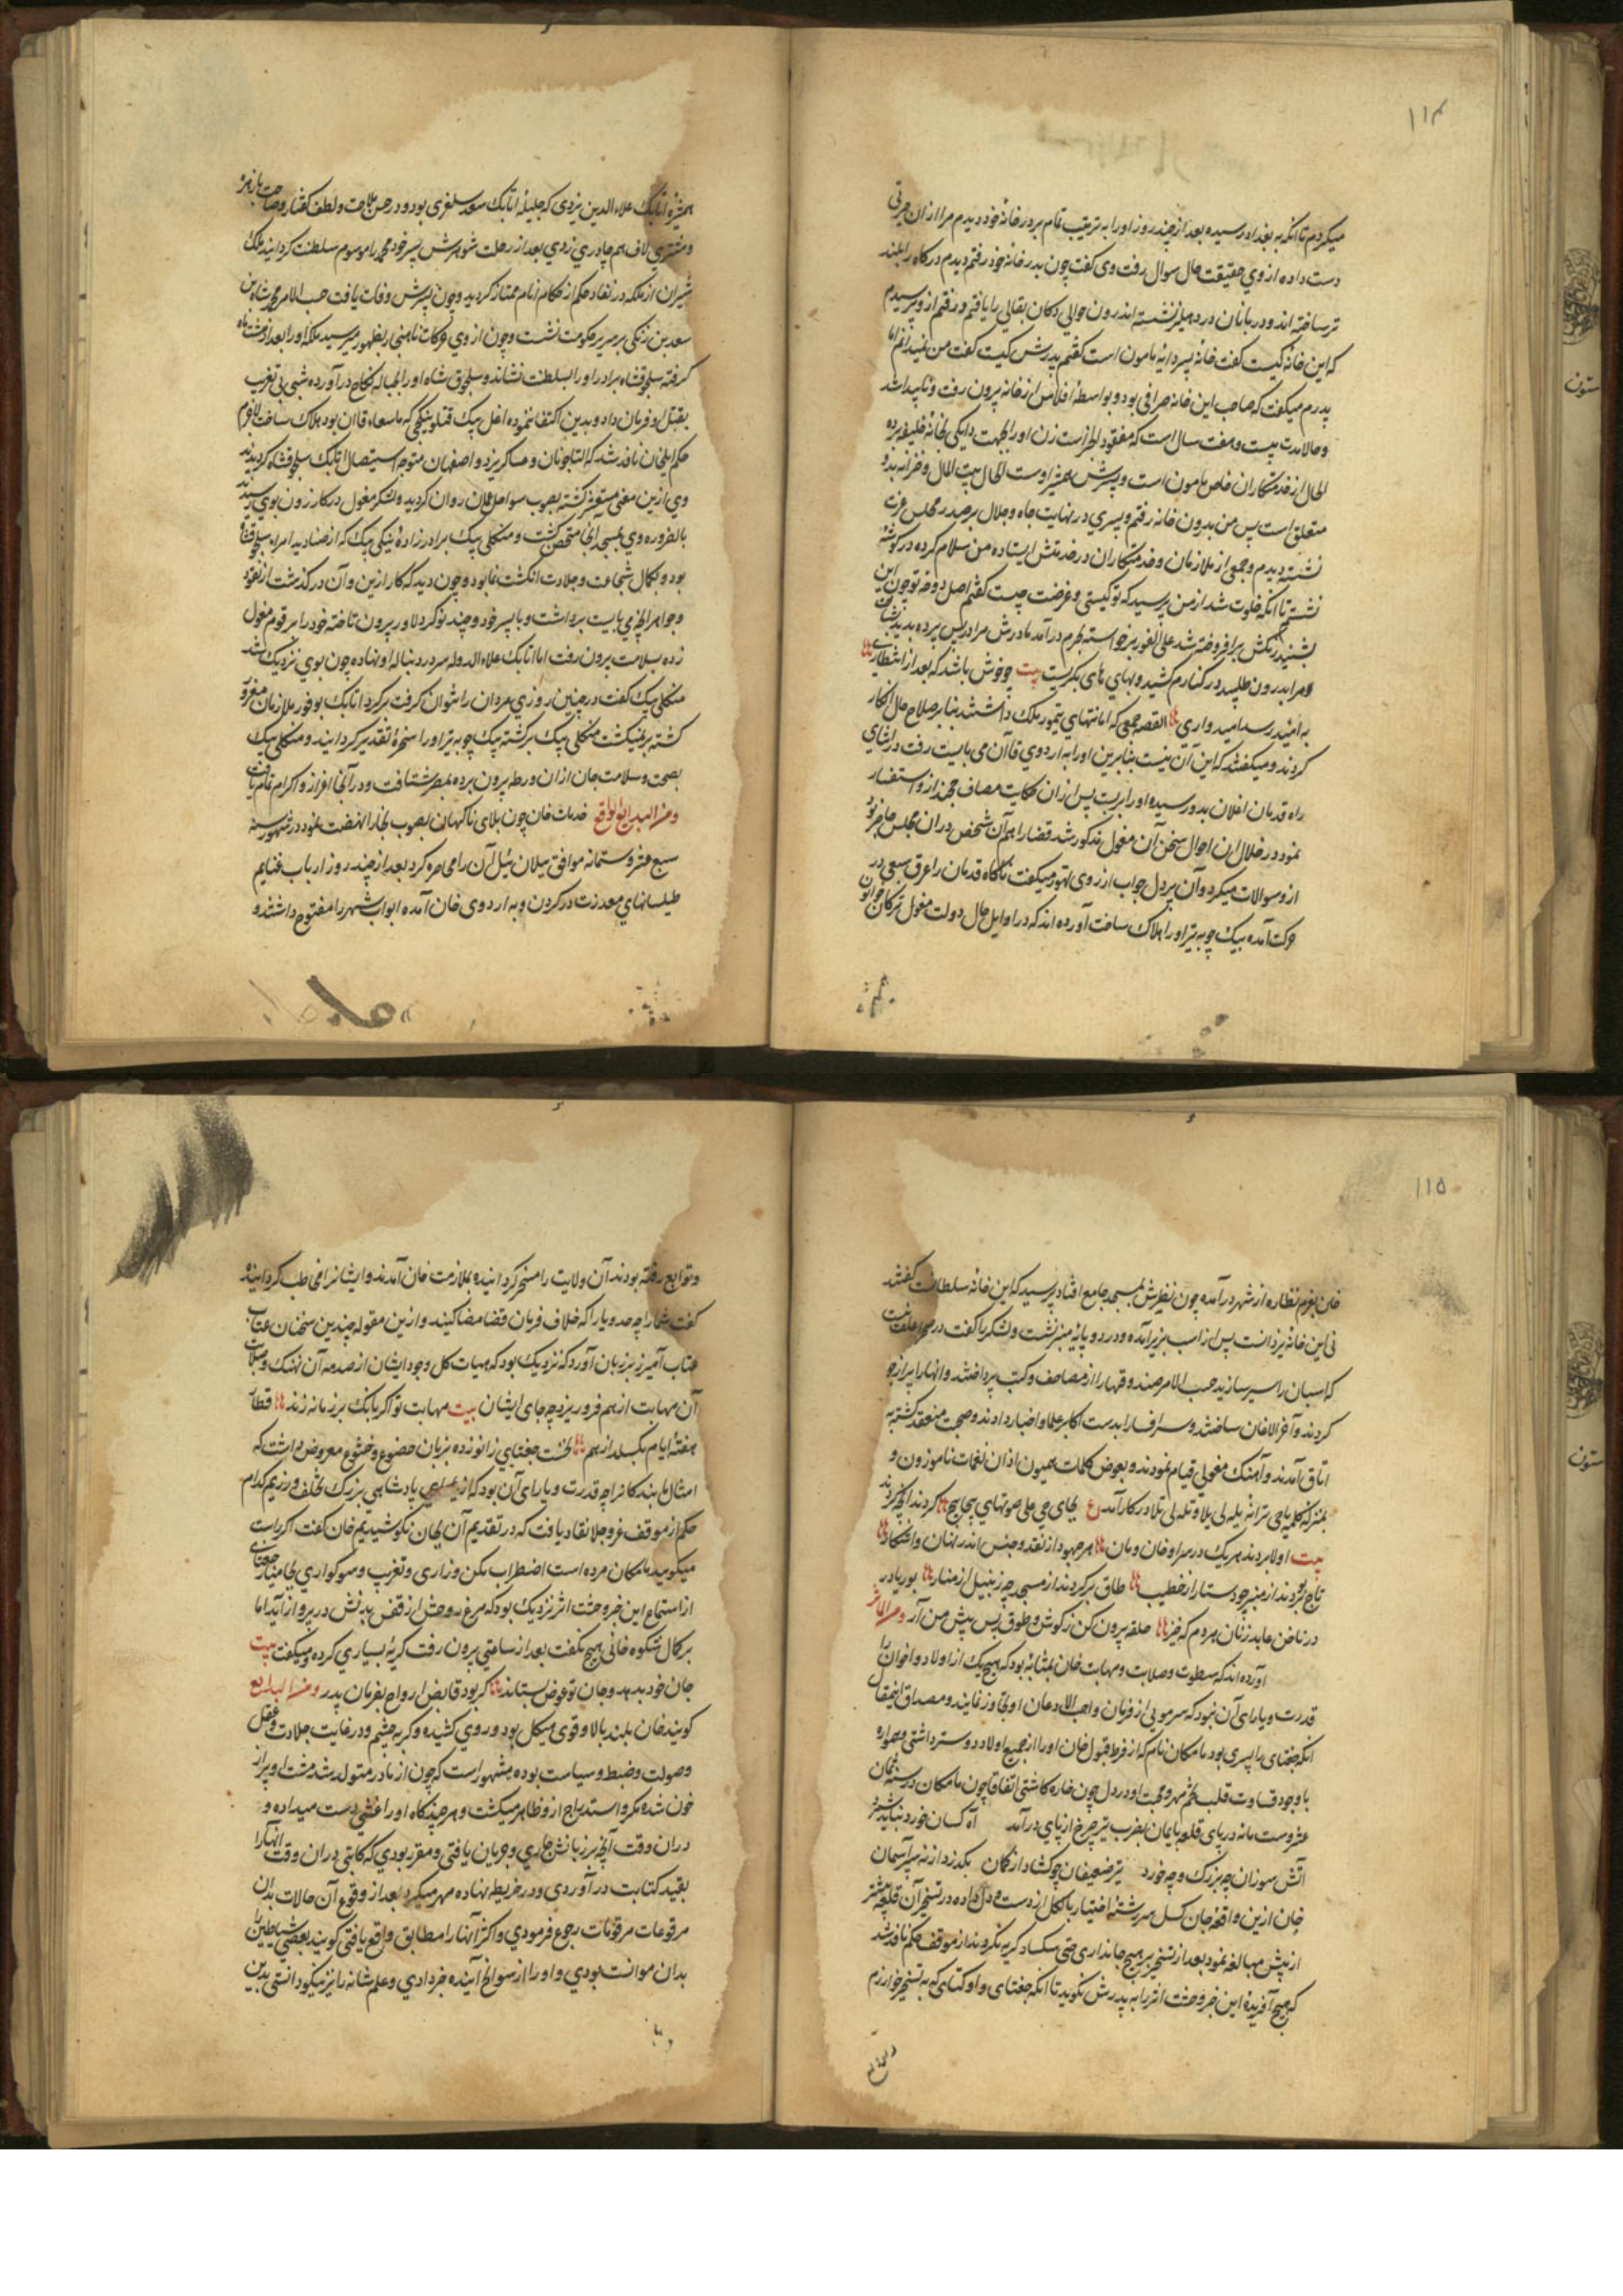 ۱۱۴
میکردم تا انکه به بغداد رسیده بعد از چند روز او را به ترتیب تمام بر در خانهٔ خود دیدم مرا ازان حیرتی
دست داده از وی حقیقت حال سوال رفت وی گفت چون بدر خانهٔ خود رفتم دیدم درگاه را بلند
تر ساخته اند و دربانان در دهلیز نشسته اند رون حوالی دکان بقالی را یافتم و رفتم از و پرسیدم
که این خانهٔ کیست گفت خانهٔ پسر دایهٔ مامون است گفتم پدرش کیست گفت من نمیدانم اما
پدرم میگفت که صاحب این خانه صرافی بود و بواسطهٔ افلاس از خانه بیرون رفت و ناپیدا شد
و حالا مدت بیست و هفت سال است که مفقود الخبر است زن او را بجهت دایگی بخانهٔ خلیفه برده
الحال از خدمتکاران خاص مامون است و پسرش همشیر اوست الحال بیت المال و خزانه بدو
متعلق است پس من بدرون خانه رفتم و پسری در نهایت جاه و جلال بر صدر مجلس عزت
نشسته دیدم و جمعی از ملازمان و خدمتکاران در خدمتش ایستاده من سلام کرده در گوشهٔ
نشستم تا انکه خلوت شد از من پرسید که تو کیستی و غرضت چیست گفتم اصل و فرع تو چون این
بشنید رنکش برافروخته شد علی الفور برخواسته بحرم درآمد مادرش مرا در پس پرده بدید بشناخت
و مرا بدرون طلبید در کنارم کشید و بهای های بگریست بیت چه خوش باشد که بعد از انتظاری
به امید رسد امید واری القصه جمعی که امانتهای تیمور ملک داشتند بنابر صلاح حال انکار
کردند و میگفتند که این آن نیست بنابرین او را به اردوی قاآن می بایست رفت در اثنای
راه قدمان اغلان بدو رسیده او را بربست پس از زبان حکایت مصاف خجند از و استفسار
نمود در خلال این احوال سخن آن مغول مذکور شد قضا را هم آن شخص دران مجلس حاضر بود
از و سوالات میکرد و آن پر دل جواب از روی تهور میگفت ناگاه قدمان را عرق سبعی در
حرکت آمده بیک چوبه تیر او را هلاک ساخت آورده اند که در اوایل حال دولت مغول ترکان خاتون
همشیرهٔ اتابک علاء الدین یزدی که جلیلهٔ اتابک سعد سلغری بود و در حسن ملاحت و لطف گفتار و صباحت با زهره
و مشتری لاف هم چادری زدی بعد از رحلت شوهرش پسر خود محمد را موسوم سلطنت گردانید ملک
شیراز ازملکه در نفاد حکم از حکام انام ممتاز گردید و چون پسرش وفات یافت حسب الامر محمد شاه بن
سعد بن زنگی بر سریر حکومت نشست و چون از وی حرکات ناهنجار بظهور میرسید ملکه او را بعد از هشت ماه
گرفته سلجوقشاه برادر او را بسلطنت نشاند و سلجوق شاه او را بحباله نکاح درآورده شبی بی تقریب
بقتل او فرمان داد و بدین اکتفا ننموده اغل بیک و قتلغ بیتکچی که باسقاق قاان بود هلاک ساخت لاجرم
حکم ایلخان نافذ شد که التاجو نان و عساکر یزد و اصفهان متوجه استیصال اتابک سلجوقشاه گردیدند
وی ازین معنی مستوحش گشته بصوب سواحل عمان روان گردید و لشکر مغول در کازرون بوی رسیدند
بالضروره وی بمسجد انجا متحصن گشت و منکلی بیک برادر زادهٔ نیکی بیک که از صنادید امراء سلجوقشاه
بود و بکمال شجاعت و جلادت انگشت نما بود و چون دید که کار ازین و آن درگذشت از نقود
و جواهر انچه می بایست برداشت و با پسر خود و چند نوکر دلاور بیرون تاخته خود را بر قوم مغول
زده بسلامت بیرون رفت اما اتابک علاء الدوله سر در دنباله او نهاده چون بوی نزدیک شد
منکلی بیک گفت در چنین روزی مردان را نتوان گرفت برگرد اتابک بوفور ملازمان مغرور
گشته برنیگشت منکلی بیک برگشته بیک چوبه تیر او را سخرهٔ تقدیر گردانید و منکلی بیک
بصحت و سلامت جان ازان ورطه بیرون برده بمصر شتافت و در آنجا اعزاز و اکرام تمام یافت
ومن البدایع الوقایع خدمات خان چون بلای ناگهان بصوب بخارا نهضت نمود در شهور سنه
سبع عشر و ستمائه موافق ییلان ئیل آن را محاصره کرد بعد از چند روز ارباب غنایم
طیلسانهای معدرت در گردن و به اردوی خان آمده ابواب شهر را مفتوح داشتند و
۱۱۵
خان بعزم نظاره از شهر درآمده چون نظرش بمسجد جامع افتاد پرسید که این خانهٔ سلطانست گفتند
نی این خانهٔ یزدانست پس از اسب بزیر آمده و در دو پایهٔ منبر نشست و لشکر را گفت در صحرا علف نیست
که اسبان را سیر سازید حسب الامر صندوقها را از مصاحف و کتب پرداختند و انها را پر از جو
کردند و آخر الاغان ساختند و سر افسار را بدست اکابر علما و اخیار دادند و صحبت منعقد گشته به
اتاق آمدند و آهنگ مغولی قیام نمودند و بعوض کلمات همیون اذان نغمات ناموزون و
بمنزله کلمه یاحی ترانه یله لی یلا و تله لی تلا در کار آمد ع بجای حی علی صوتهای بیحا بیح کردند انچه کردند
بیت اولا بردند هر یک در سرا و خان و مان هر چه بود از نقد و جنس اندر نهان و اشکار
تاج بربودند از منبر چو دستار از خطیب طاق برکردند از مسجد چو زنبیل از منار بوریا در
در ناخن عابد زنان هر دم که خیز حلقه بیرون کن ز گوش و طوق پس پیش من آر ومن الماثر
آورده اند که سطوت و صلابت و مهابت خان بمثابهٔ بود که هیچ یک از اولاد و اخوان را
قدرت و یارای آن نبود که سر مویی از فرمان واجب الاذعان او تجاوز نمایند و مصداق اینمقال
انکه جغتای را پسری بود مامکان نام که از فرط قبول خان او را از جمیع اولاد دوستر داشتی و همواره
باوجود قساوت قلب تخم مهر و محبت او در دل چون خاره کاشتی اتفاقا چون مامکان در سنه ثمان
عشر و ستمائه در پای قلعه بامیان بضرب تیر چرخ از پای درآمد آه کسان خورد نباید شمرد
آتش سوزان چه بزرگ و چه خورد تیر ضعیفان چو گشاد از کمان بگذرد از نه سپر آسمان
خان ازین واقعهٔ جان گسل سر رشتهٔ اختیار بالکل از دست داده در تسخیر آن قلعه بیشتر
از پیش مبالغه نمود بعد از تسخیر بر هیچ جانداری حتی سگ و گربه نگروند از موقف حکم نافذ شد
که هیچ آفریدهٔ این خبر وحشت اثر را به پدرش نگوید تا انکه جغتای و اوکتای که به تسخیر خوارزم
و توابع رفته بودند آن ولایت را مسخر گردانیده بملازمت خان آمدند و ایشانرا مخاطب گردانیده
گفت شما را چه حد و یارا که خلاف فرمان قضا مضا کنید و ازین مقوله چندین سخنان عتاب
عتاب آمیز بر زبان آورد که نزدیک بود که هیات کل وجود ایشان از صدمه آن نهنگ و صلابت
آن مهابت از هم فرو ریزد چه جای ایشان بیت مهابت تو اگر بانگ بر زمانه زند قطار
هفتهٔ ایام بگسلد از هم نخست جغتای زانو زده بزبان خضوع و خشوع معروض داشت که
امثال ما بندکانرا چه قدرت و یارای آن بود که از یاسای پادشاهی بزرگ تخلف ورزیم کدام
حکم از موقف عز و جلا نفاد یافت که در تقدیم آن بجان نکوشیدیم خان گفت اگر راست
میگویید مامکان مرده است اضطراب مکن و زاری و تعزیت و سوگواری بجا میار جغتای
از استماع این خبر وحشت اثر نزدیک بود که مرغ روحش از قفس بدنش در پرواز آید اما
بر کمال شکوه خانی هیچ نگفت بعد از ساعتی بیرون رفت گریهٔ بسیاری کرده و میگفت بیت
جان خود بدهد و جان تو عوض بستاند گر بود قابض ارواح بفرمان پدر ومن البدایع
گویند خان بلند بالا و قوی هیکل بود و روی کشیده و گربه چشم و در غایت جلادت و عقل
و صولت و ضبط و سیاست بوده مشهور است که چون از مادر متولد شد مشت او پر از
خون شده مکر و استدراج از و ظاهر میگشت و هر چند گاه او را غشی دست میداده و
دران وقت آنچه بر زبانش جاری و جریان یافتی و مقرر بودی که کاتبی دران وقت آنها را
بقید کتابت درآوردی و در خریطه نهاده مهر میکرد بعد از وقوع آن حالات بدان
مرقوعات مرقومات رجوع فرمودی و اکثر آنها را مطابق واقع یافتی گویند بعضی شیاطین را
بدان موانست بودی و او را از سوانح آینده خبر دادی و علم شانه را نیز نیکو دانستی بدین